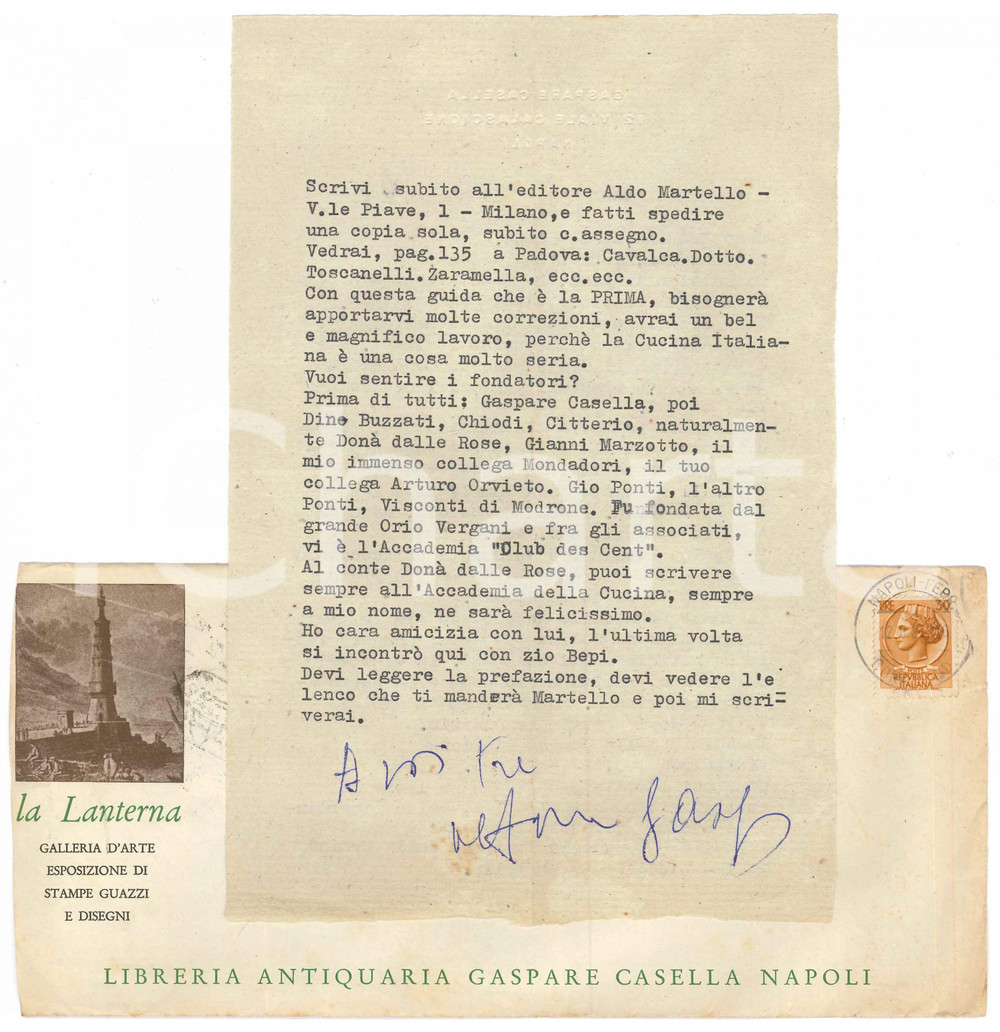 GASPARE CASELLA
Scrivi subito all'editore Aldo Martello -
V.le Piave, 1 - Milano,e fatti spedire
una copia sola, subito c.assegno.
Vedrai, pag.135 a Padova: Cavalca.Dotto.
Toscanelli.Zaramella, ecc.ecc.
Con questa guida che è la PRIMA, bisognerà
apportarvi molte correzioni, avrai un bel
e magnifico lavoro, perchè la Cucina Italia-
na è una cosa molto seria.
Vuoi sentire i fondatori?
Prima di tutti: Gaspare Casella, poi
Dino Buzzati, Chiodi, Citterio, naturalmen-
te Donà dalle Rose, Gianni Marzotto, il
mio immenso collega Mondadori, il tuo
collega Arturo Orvieto. Gio Ponti, l'altro
Ponti, Visconti di Modrone. Fu fondata dal
grande Orio Vergani e fra gli associati,
vi è l'Accademia "Club des Cent".
Al conte Donà dalle Rose, puoi scrivere
sempre all'Accademia della Cucina, sempre
a mio nome, ne sarà felicissimo.
Ho cara amicizia con lui, l'ultima volta
si incontrò qui con zio Bepi.
Devi leggere la prefazione, devi vedere l'e
lenco che ti manderà Martello e poi mi scri-
verai.
A voi tre
la Lanterna
GALLERIA D'ARTE
ESPOSIZIONE DI
STAMPE GUAZZI
E DISEGNI
NAPOLI-FERR
LIRE 50
POSTE
REPVBBLICA
ITALIANA
LIBRERIA ANTIQUARIA GASPARE CASELLA NAPOLI